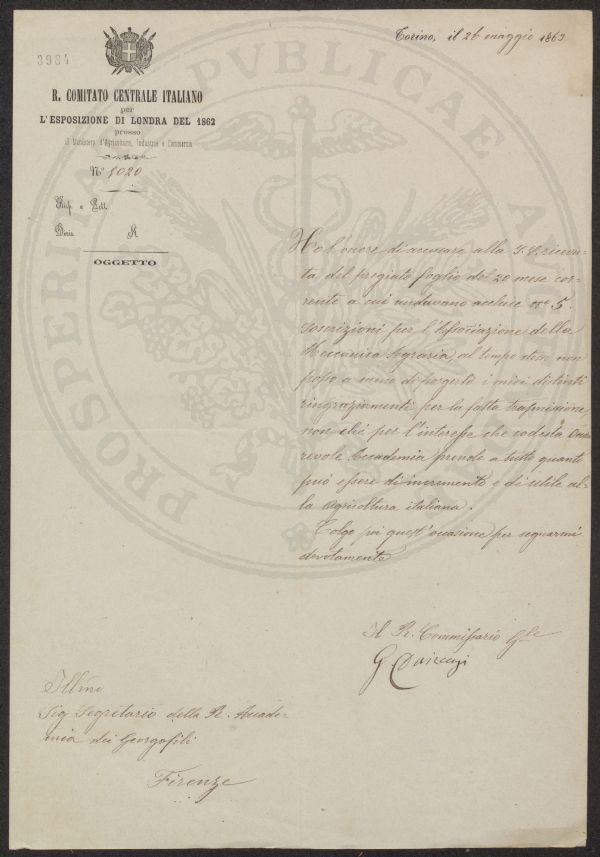 3984
Torino, il 26 maggio 1863
R. COMITATO CENTRALE ITALIANO
per
L'ESPOSIZIONE DI LONDRA DEL 1862
presso
il Ministero d'Agricoltura, Industria e Commercio
N° 1020
Risp. a Lett.
Deric. N.
OGGETTO
Ho l'onore di accusare alla S. S. ricevu-
ta del pregiato foglio del 20 mese cor-
rente a cui andavano accluse n° 5
soscrizioni per l'Associazione della
Meccanica Agraria, al tempo stesso non
posso a meno di porgerle i miei distinti
ringraziamenti per la fatta trasmissione
non chè per l'interesse che codesta Ono
revole Accademia prende a tutto quanto
può essere di incremento e di utile al-
la agricoltura italiana.
Colgo poi quest'occasione per segnarmi
devotamente
Il R. Commissario Gle
G Devincenzi
Illmo
Sig Segretario della R. Accade-
mia dei Georgofili
Firenze
PROSPERITATI PVBLICAE AVGENDAE